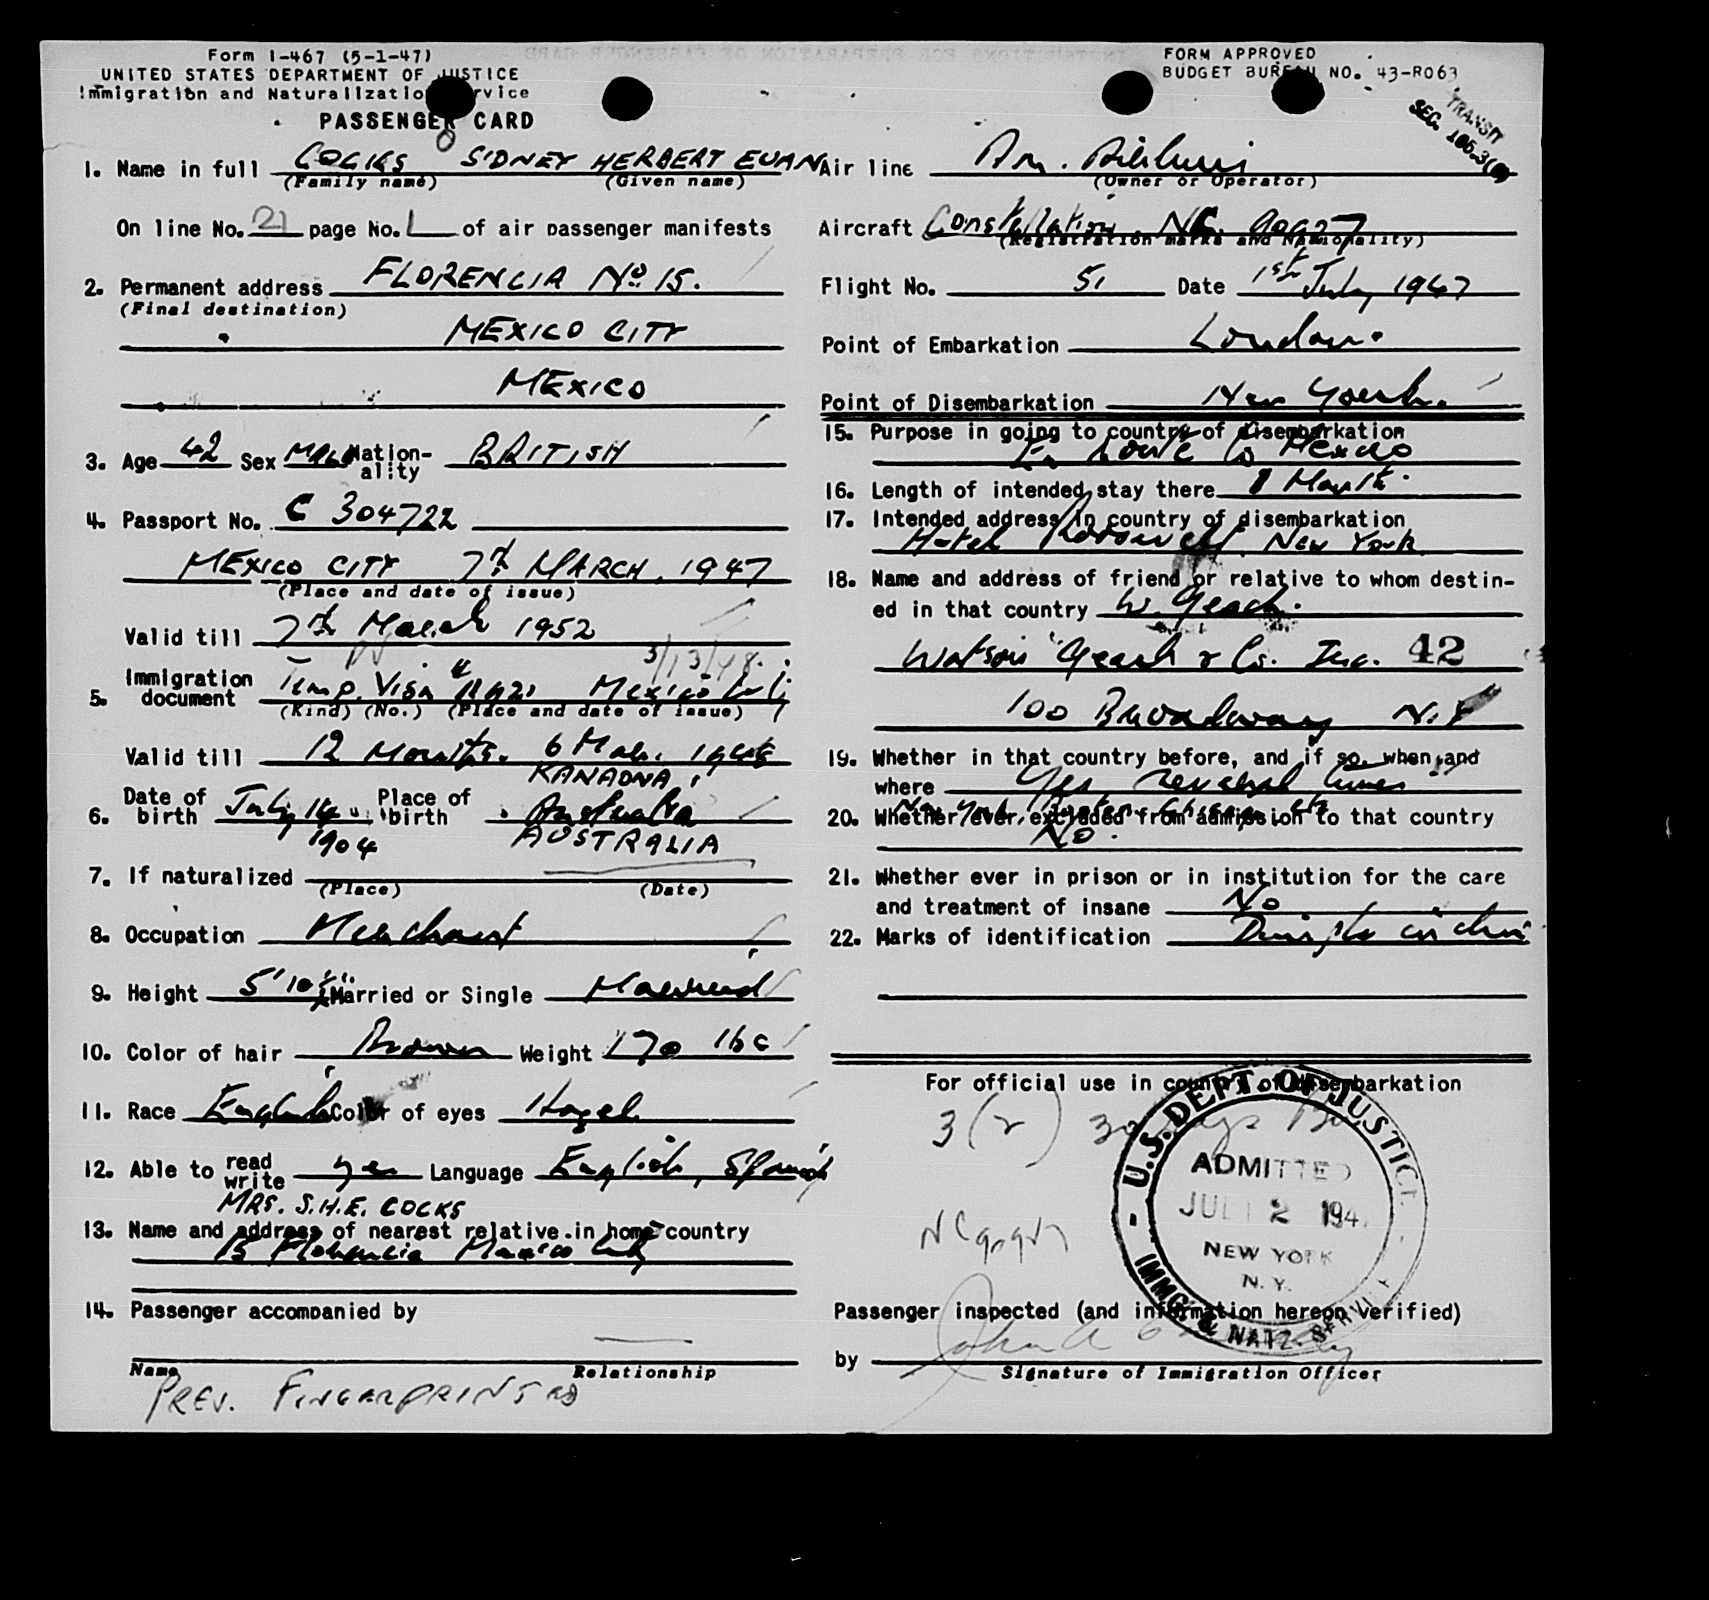 Form I-467 (5-1-47)
UNITED STATES DEPARTMENT OF JUSTICE
Immigration and Naturalization Service
PASSENGER CARD
FORM APPROVED
BUDGET BUREAU NO. 43-R063
TRANSIT
SEC. 105.3(
1. Name in full COCKS SIDNEY HERBERT EUAN
(Family name) (Given name)
On line No. 21 page No. 1 of air passenger manifests
2. Permanent address FLORENCIA No. 15.
(Final destination)
MEXICO CITY
MEXICO
3. Age 42 Sex MALE Nationality BRITISH
4. Passport No. C 304722
MEXICO CITY 7th MARCH, 1947
(Place and date of issue)
Valid till 7th March 1952
3/13/48.
5. Immigration document Temp. Visa # Mexico City
(Kind) (No.) (Place and date of issue)
Valid till 12 Months. 6 Mar. 1948
KANADNA,
6. Date of birth July 14 Place of birth Australia
1904 AUSTRALIA
7. If naturalized
(Place) (Date)
8. Occupation Merchant
9. Height 5' 10½" Married or Single Married
10. Color of hair Brown Weight 170 lbs
11. Race English Color of eyes Hazel
12. Able to read write yes Language English, Spanish
MRS. S.H.E. COCKS
13. Name and address of nearest relative in home country
15 Florencia Mexico City
14. Passenger accompanied by
Name Relationship
PREV. FINGERPRINTED
Air line Am. Airlines
(Owner or Operator)
Aircraft Constellation NC 90927
(Registration marks and Nationality)
Flight No. 51 Date 1st July 1947
Point of Embarkation London.
Point of Disembarkation New York.
15. Purpose in going to country of disembarkation
En route to Mexico
16. Length of intended stay there 1 Month.
17. Intended address in country of disembarkation
Hotel Roosevelt, NEW YORK
18. Name and address of friend or relative to whom destined in that country W. Geach.
Watson Geach & Co. Inc. 42
100 Broadway N.Y
19. Whether in that country before, and if so, when and
where Yes several times
New York, Boston, Chicago, etc
20. Whether ever excluded from admission to that country
No.
21. Whether ever in prison or in institution for the care
and treatment of insane No
22. Marks of identification Dimple in chin
For official use in country of disembarkation
3 (r) 30 days
U.S. DEPT. OF JUSTICE
ADMITTED
JUL 2 194
NEW YORK
N.Y.
IMMG. & NATZ. SERVICE
Passenger inspected (and information hereon verified)
by
Signature of Immigration Officer